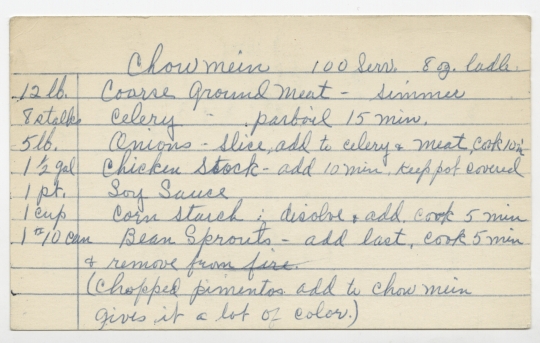 Chow mein 100 Serv. 8 oz. ladle
12 lb. Coarse Ground Meat - simmer
8 stalks celery - parboil 15 min.
5 lb. Onions - slice, add to celery & meat, cook 10 min
1 1/2 gal Chicken Stock - add 10 min. keep pot covered
1 pt. Soy Sauce
1 cup Corn Starch ; disolve & add, cook 5 min
1 #10 can Bean Sprouts - add last, cook 5 min
& remove from fire.
(Chopped pimentos add to chow mein
gives it a lot of color.)